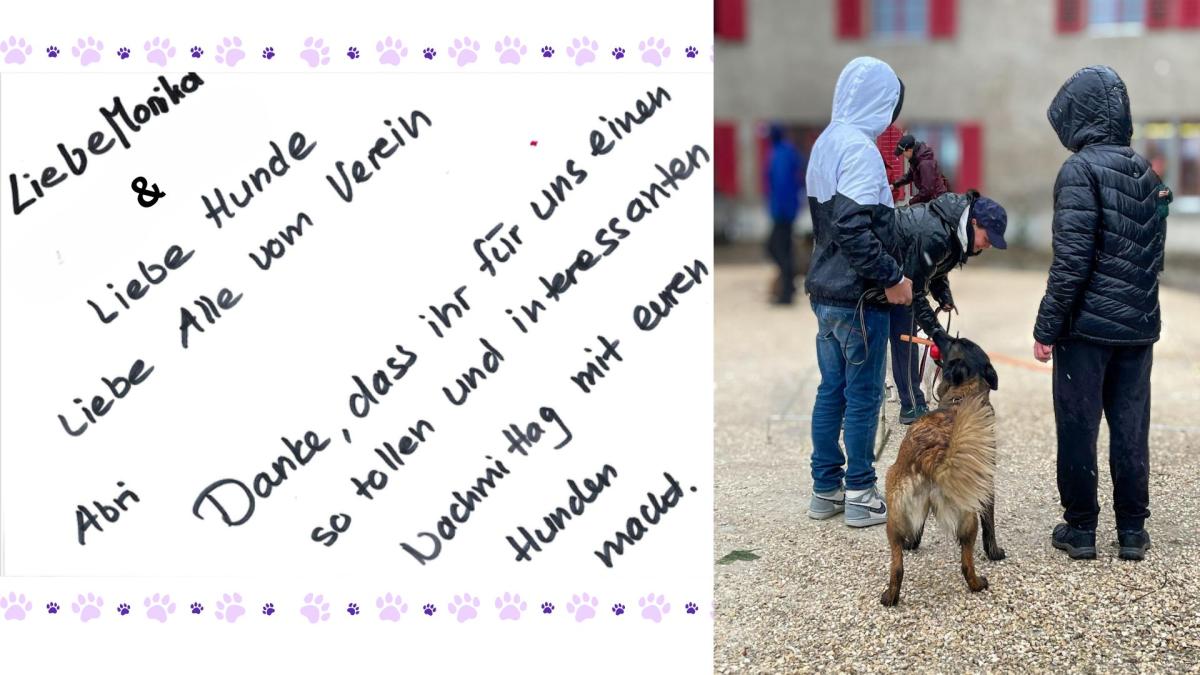 Liebe Monika
&
Liebe Hunde
Liebe Alle vom Verein
Danke, dass ihr für uns einen
so tollen und interessanten
Nachmittag mit euren
Hunden
macht.
Abri